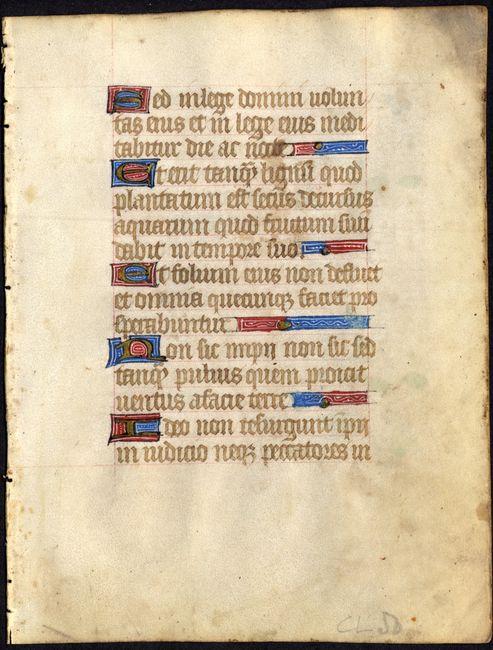 Sed in lege domini uolun
tas eius et in lege eius medi
tabitur die ac nocte
Et erit tanq̄ lignū quod
plantatum est secus decursus
aquarum quod fructum suū
dabit in tempore suo
Et folium eius non defluet
et omnia quecunqȝ faciet pro
sperabuntur
Non sic impij non sic sed
tanq̄ puluis quem proicit
uentus a facie terre
Ideo non resurgunt ipij
in iudicio neqȝ peccatores in